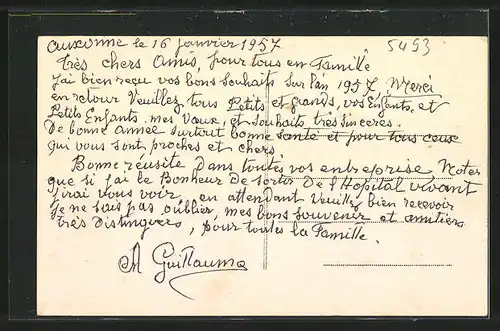 auxonne le 16 janvier 1957
5493
très chers Amis, pour tous en Famille
J'ai bien reçu vos bons souhaits sur l'an 1957, Merci
en retour Veuillez, tous Petits et grands, vos Enfants, et
Petits Enfants, mes Vœux, et souhaits très sinceres.
De bonne année surtout bonne santé et pour tous ceux
qui vous sont proches et chers
Bonne reúsite Dans toutes vos entreprise Noter
que si j'ai le Bonheur de sortir De l'Hopital vivant
J'irai vous voir, en attendant Veuillez bien recevoir
Je ne sais pas oublier, mes bons souvenir et amitiers
très Distinguers, pour toutes la Famille.
A Guillaume